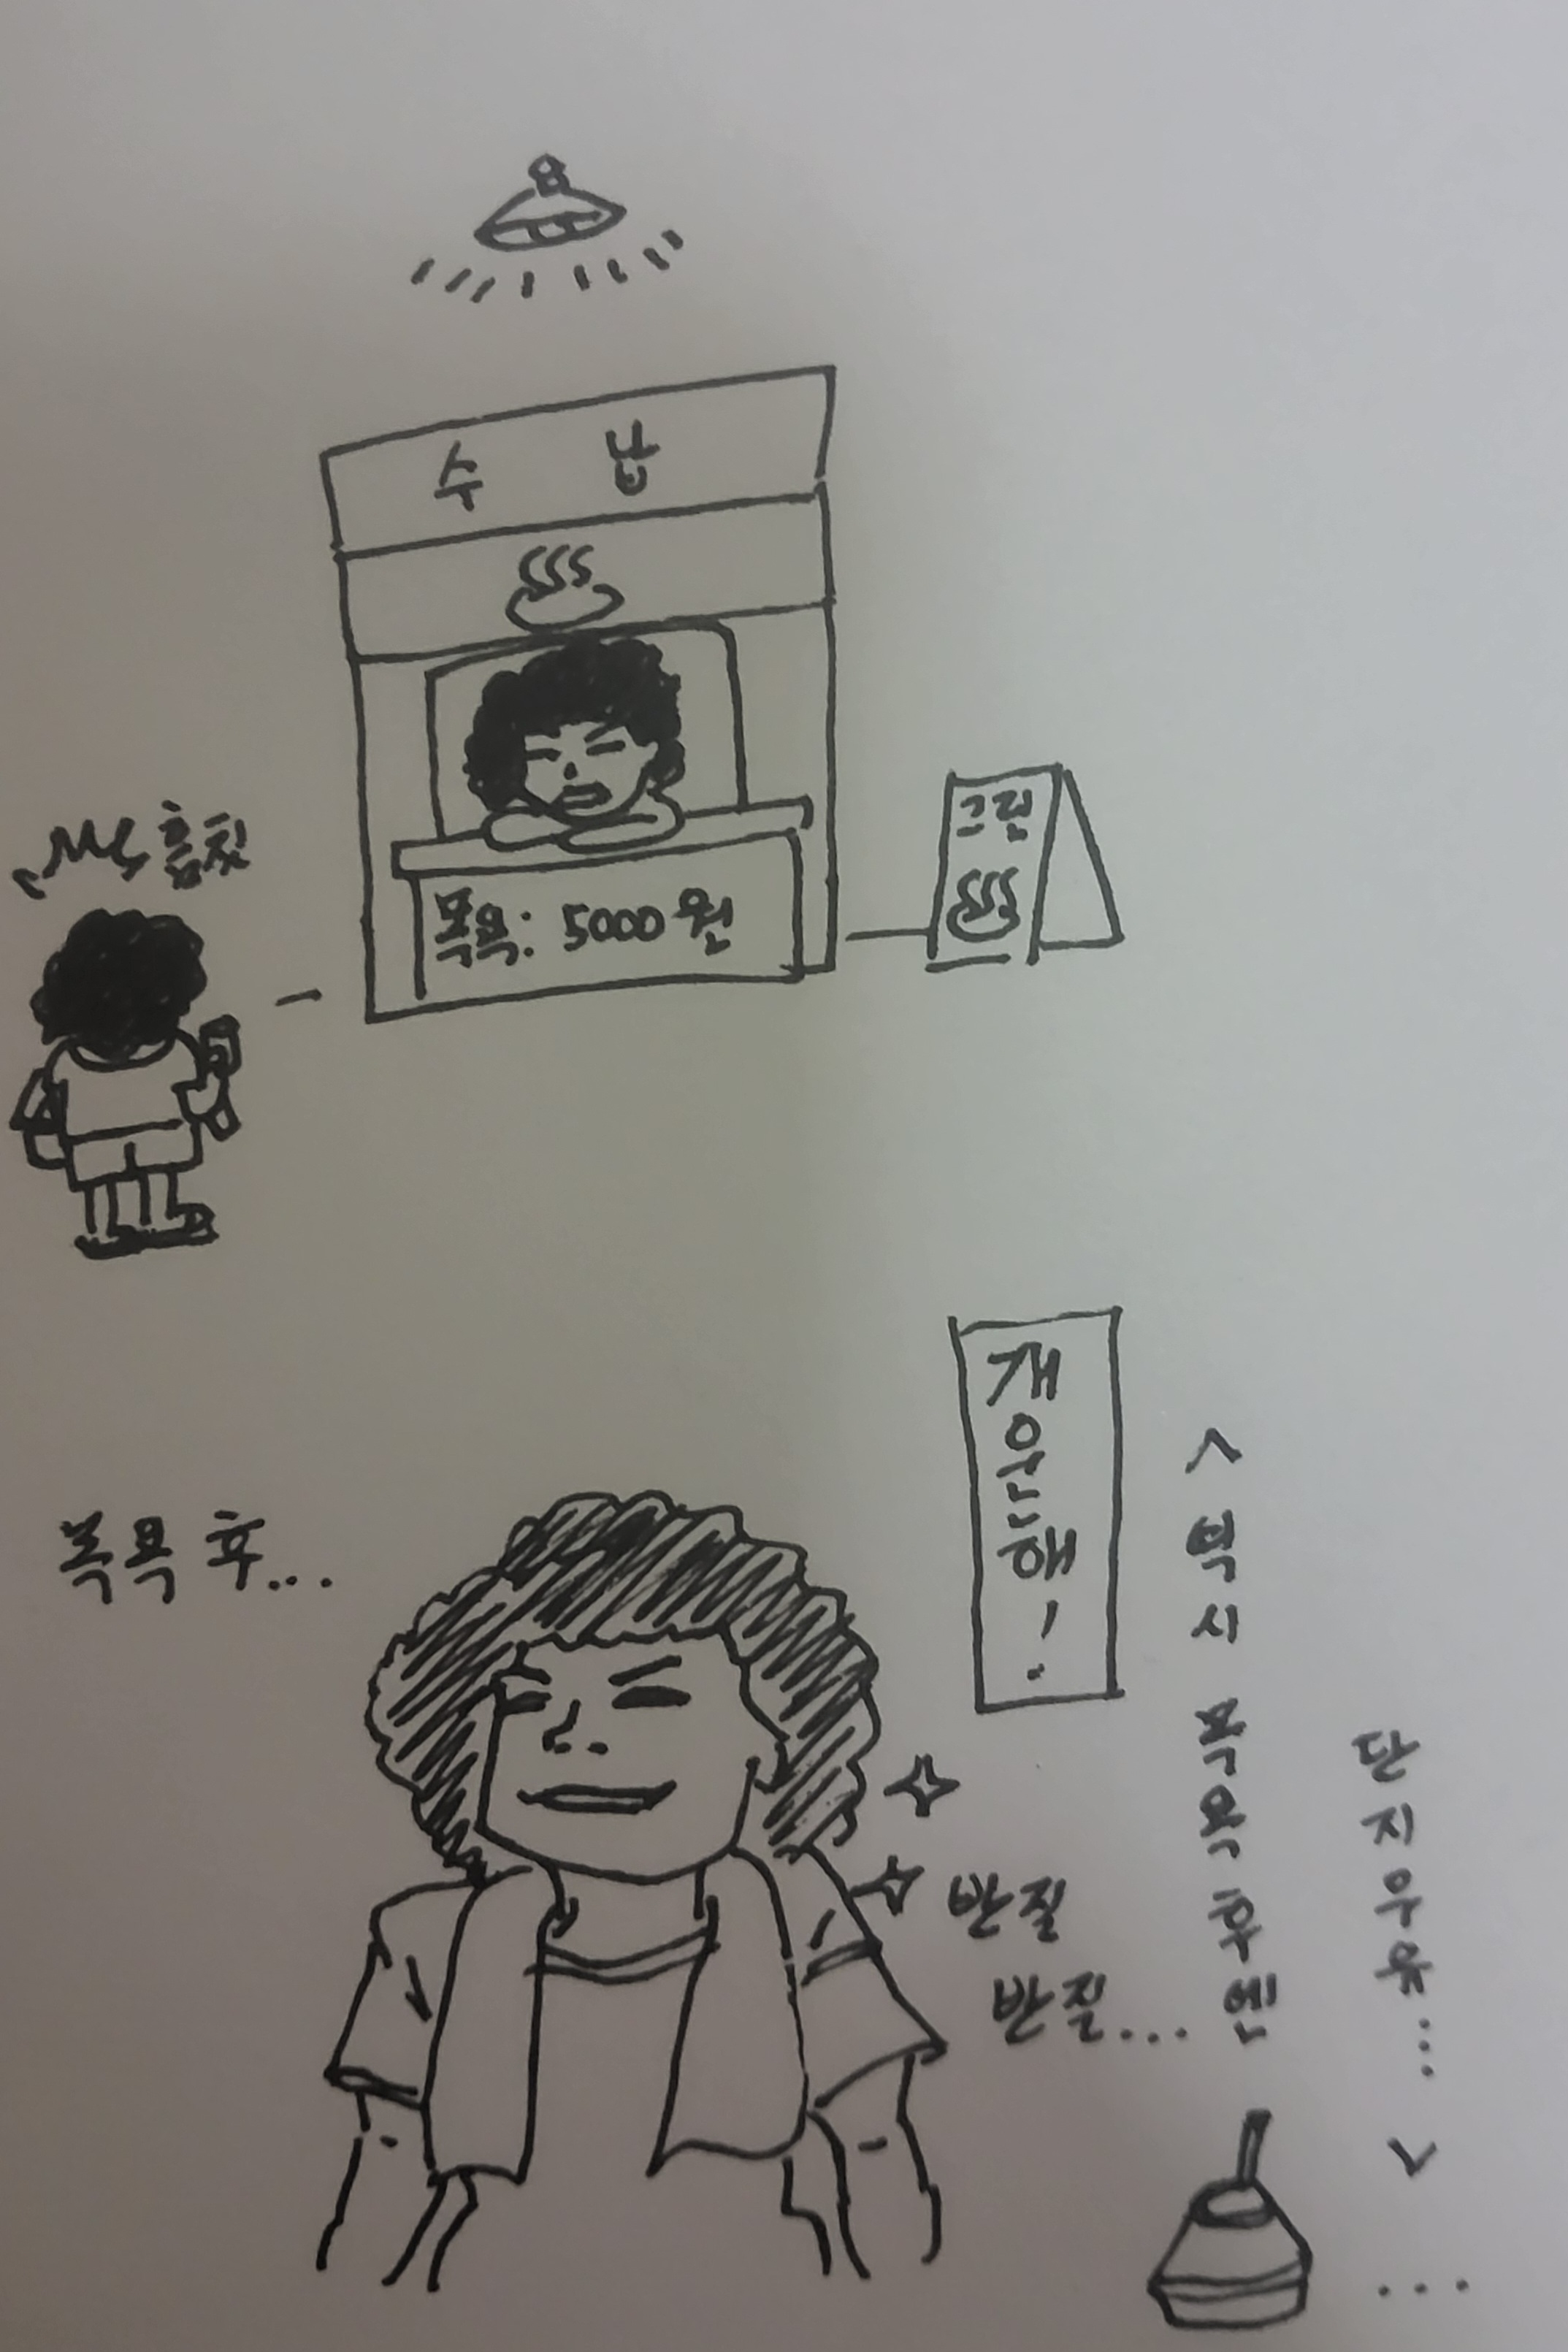 수 납
흠칫
목욕: 5000원
그린
개운해!
목욕 후...
<역시 목욕 후엔
단지우유...>
반질
반질...
...